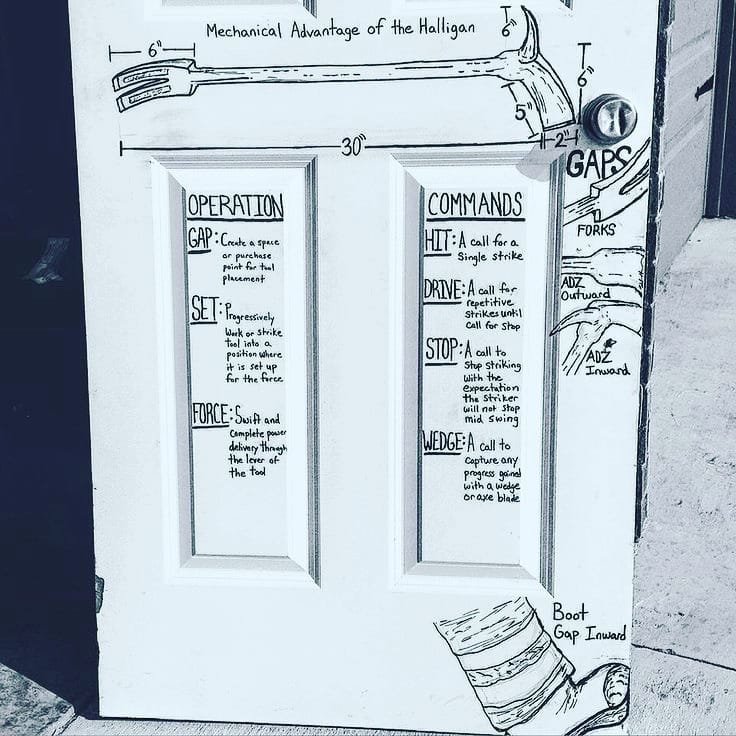 Mechanical Advantage of the Halligan
6"
6"
6"
5"
2"
30"
GAPS
FORKS
ADZ
Outward
ADZ
Inward
OPERATION
GAP: Create a space
or purchase
point for tool
placement
SET: Progressively
work or strike
tool into a
position where
it is set up
for the force
FORCE: Swift and
complete power
delivery through
the lever of
the tool
COMMANDS
HIT: A call for a
single strike
DRIVE: A call for
repetitive
strikes until
call for stop
STOP: A call to
stop striking
with the
expectation
the striker
will not stop
mid swing
WEDGE: A call to
capture any
progress gained
with a wedge
or axe blade
Boot
Gap Inward